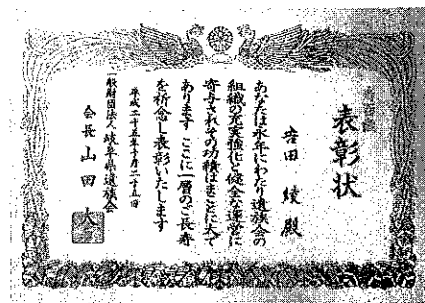 表彰状
吉田 綾 殿
あなたは永年にわたり遺族会の
組織の充実強化と健全な運営に
寄与されその功績はまことに大で
あります ここに一層のご長寿
を祈念し表彰いたします
平成二十五年十月二十五日
一般財団法人岐阜県遺族会
会長 山田 大